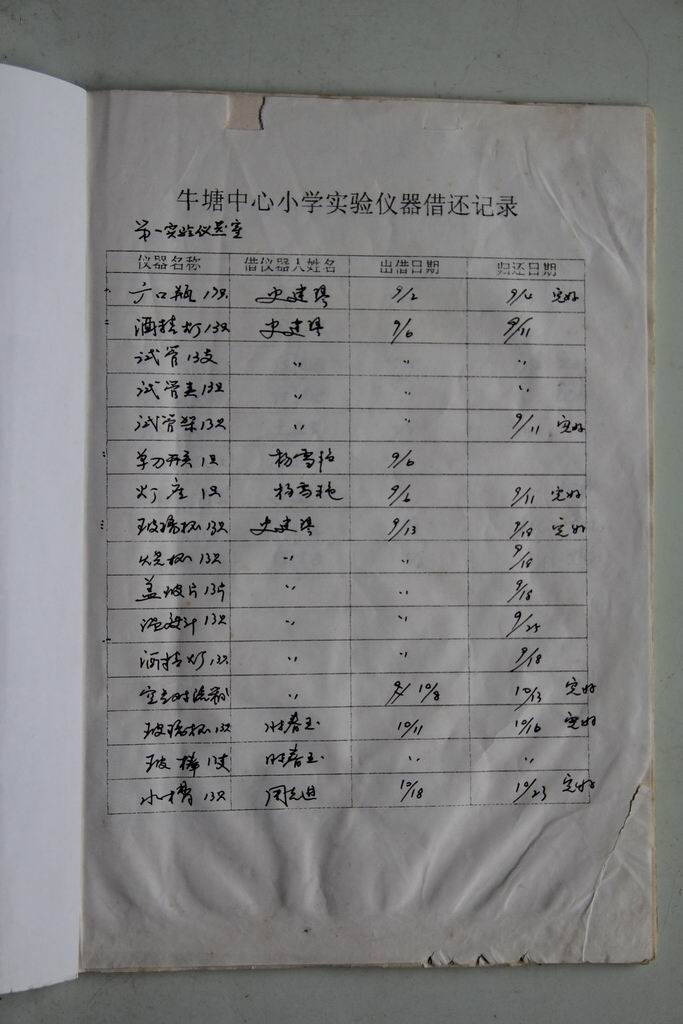 牛塘中心小学实验仪器借还记录
第一实验仪器室
仪器名称 借仪器人姓名 出借日期 归还日期
广口瓶 13只 史建琴 9/2 9/4 完好
酒精灯 13只 史建琴 9/6 9/11
试管 13支 〃 〃 〃
试管夹 13只 〃 〃 〃
试管架 13只 〃 〃 9/11 完好
单刀开关 1只 杨雪艳 9/6
灯座 1只 杨雪艳 9/6 9/11 完好
玻璃杯 13只 史建琴 9/13 9/18 完好
烧杯 13只 〃 〃 9/18
盖玻片 13片 〃 〃 9/18
温度计 13只 〃 〃 9/25
酒精灯 13只 〃 〃 9/18
空气对流 〃 10/8 10/13 完好
玻璃杯 13只 春玉 10/11 10/16 完好
玻棒 13支 春玉 〃 〃
水槽 13只 周 10/18 10/23 完好